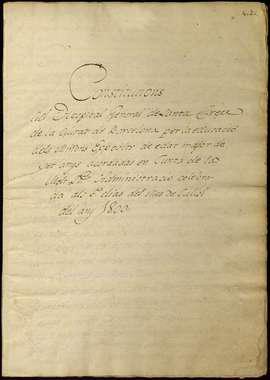 Constitucions
del Ospital General de Santa Creu
de la Ciutat de Barcelona per la educació
dels Minyons Expósits de edat major de
set anys acordadas en Junta de la
Molt Ille Administració celebra-
da als 6 dias del mes de Juliol
del any 1800